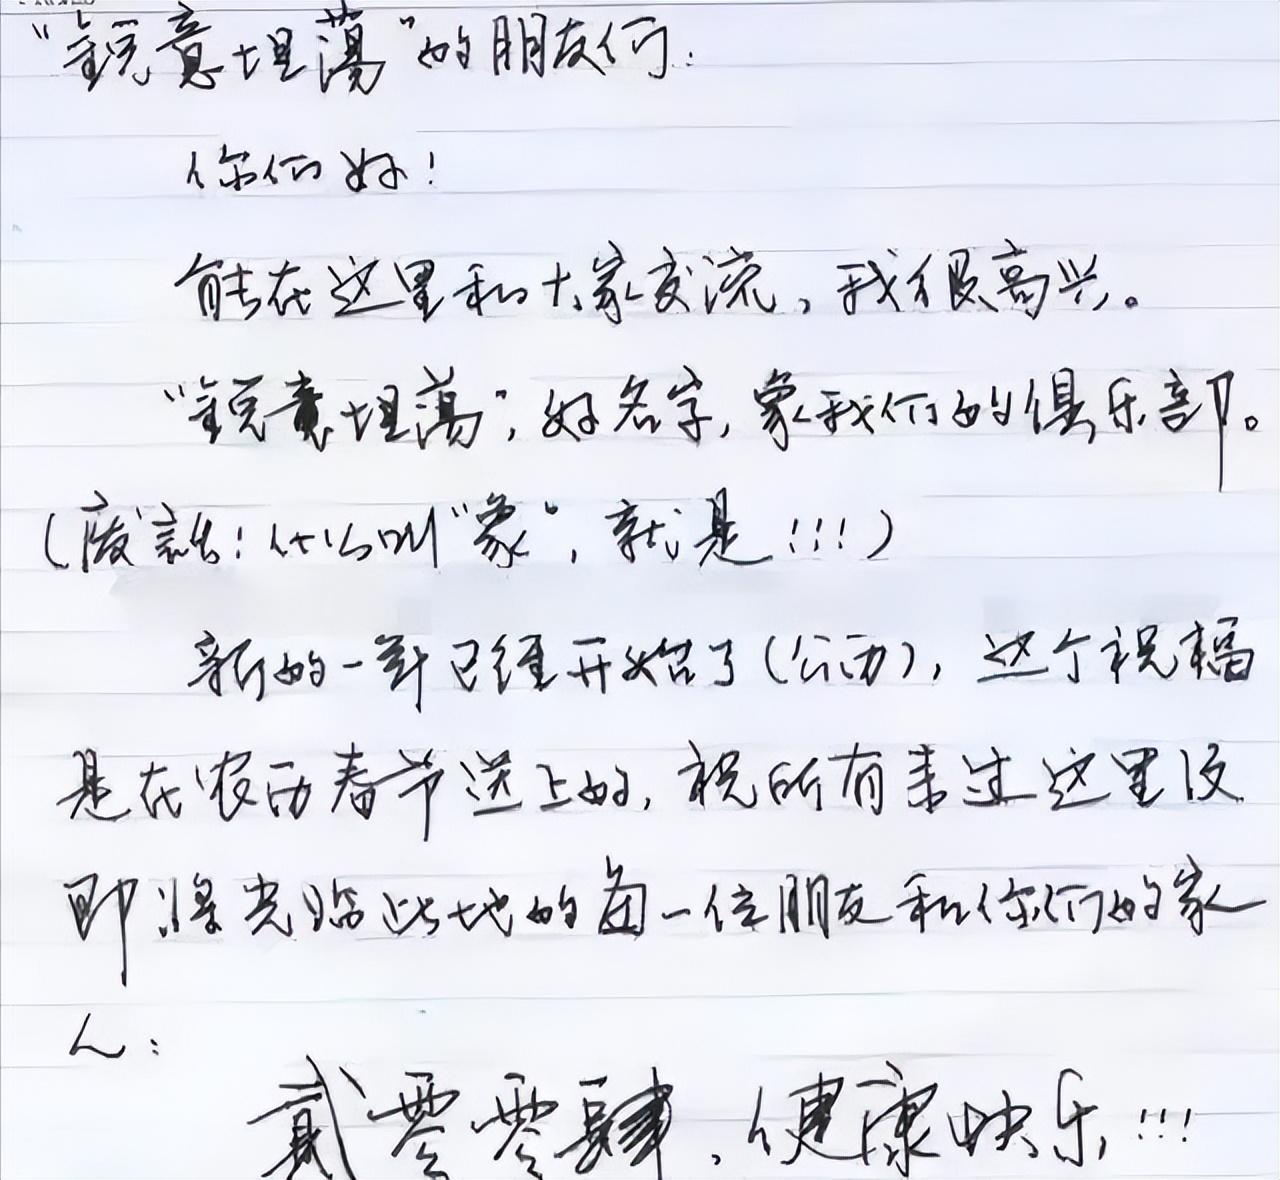 “鋭意坦蕩”的朋友们：
你们好！
能在这里和大家交流，我很高兴。
“鋭意坦蕩”，好名字，象我们的俱乐部。
（废話！什么叫“象”，就是！！！）
新的一年已经开始了（公历），这个祝福
是在农历春节送上的，祝所有来过这里及
即将光临此地的每一位朋友和你们的家
人：
貳零零肆，健康快乐！！！